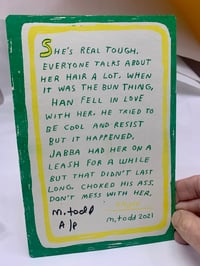 SHE'S REAL TOUGH.
EVERYONE TALKS ABOUT
HER HAIR A LOT. WHEN
IT WAS THE BUN THING,
HAN FELL IN LOVE
WITH HER. HE TRIED TO
BE COOL AND RESIST
BUT IT HAPPENED.
JABBA HAD HER ON A
LEASH FOR A WHILE
BUT THAT DIDN'T LAST
LONG. CHOKED HIS ASS.
DON'T MESS WITH HER.
m.todd
A/p
m.todd 2021